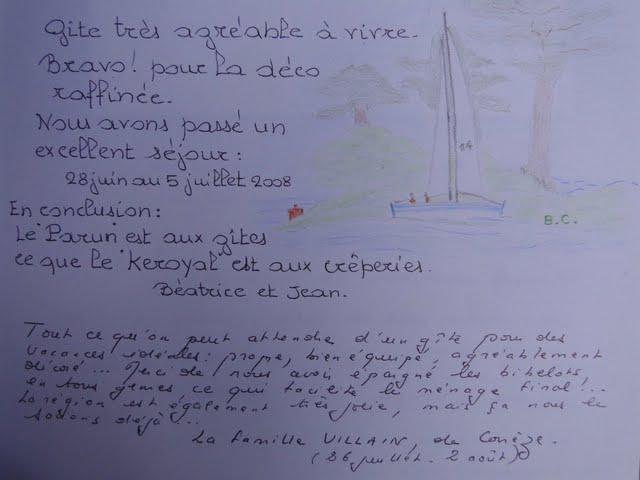 Gite très agréable à vivre.
Bravo! pour la déco
raffinée.
Nous avons passé un
excellent séjour:
28 juin au 5 juillet 2008
En conclusion:
Le "Parun" est aux gîtes
ce que le "Keroyal" est aux crêperies.
Béatrice et Jean.
24
B.C.
Tout ce qu'on peut attendre d'un gîte pour des
vacances idéales: propre, bien équipé, agréablement
décoré... Merci de nous avoir épargné les bibelots
en tous genres ce qui facilite le ménage final!..
La région est également très jolie, mais ça nous le
savions déjà...
La famille VILLAIN, de Corrèze.
(26 juillet - 2 août)